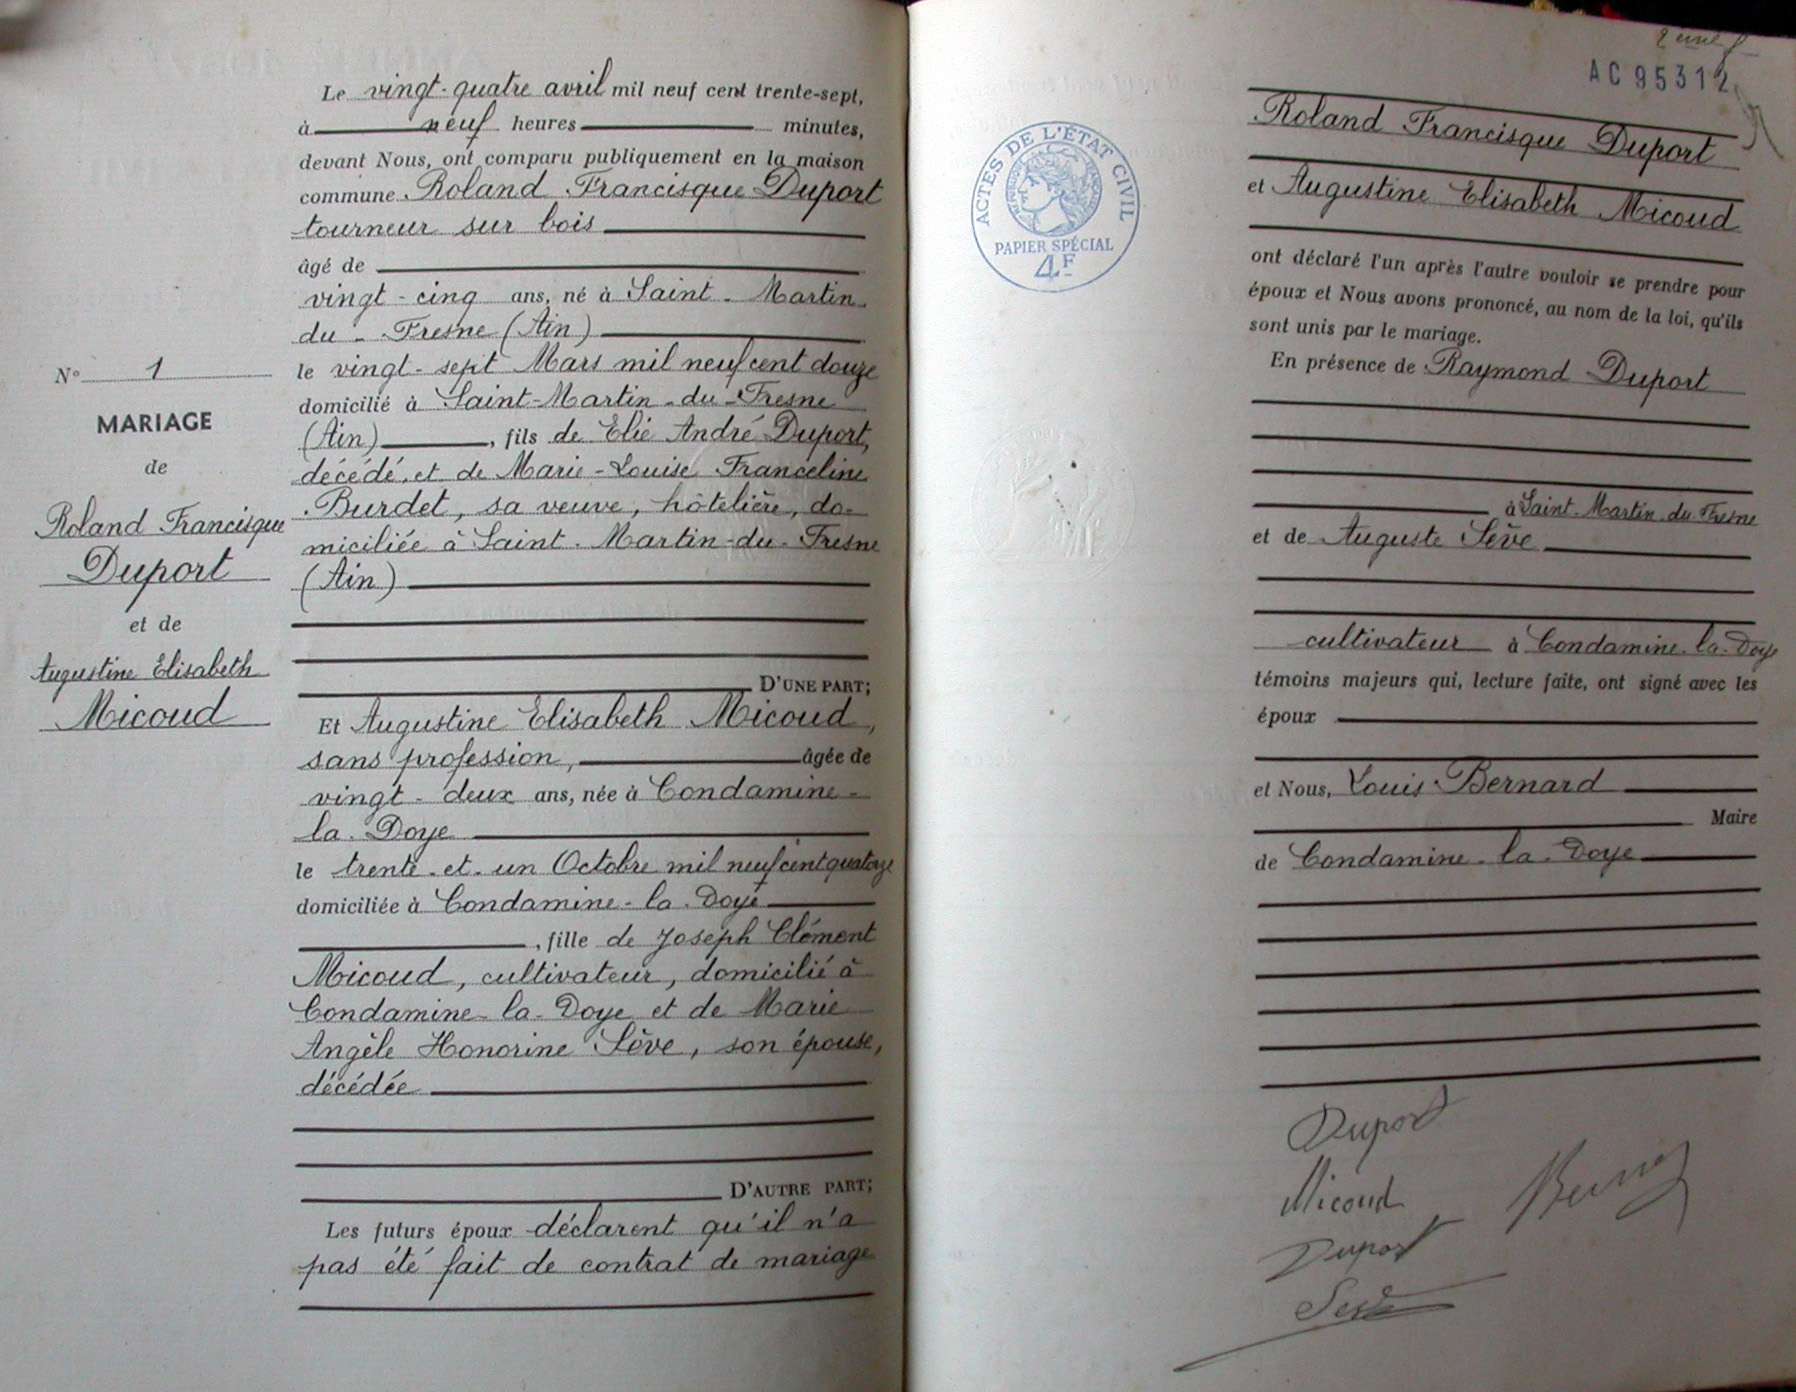 Le vingt-quatre avril mil neuf cent trente-sept,
à neuf heures minutes,
devant Nous, ont comparu publiquement en la maison
commune Roland Francisque Duport
tourneur sur bois
âgé de
vingt-cinq ans, né à Saint-Martin-
du-Fresne (Ain)
le vingt-sept Mars mil neuf cent douze
domicilié à Saint-Martin-du-Fresne
(Ain), fils de Elie André Duport,
décédé, et de Marie-Louise Franceline
Burdet, sa veuve, hôtelière, do-
miciliée à Saint-Martin-du-Fresne
(Ain)
D'UNE PART;
Et Augustine Elisabeth Micoud,
sans profession, âgée de
vingt-deux ans, née à Condamine-
la-Doye
le trente-et-un Octobre mil neuf cent quatorze
domiciliée à Condamine-la-Doye
, fille de Joseph Clément
Micoud, cultivateur, domicilié à
Condamine-la-Doye et de Marie
Angèle Honorine Sève, son épouse,
décédée
D'AUTRE PART;
Les futurs époux déclarent qu'il n'a
pas été fait de contrat de mariage
N° 1
MARIAGE
de
Roland Francisque
Duport
et de
Augustine Elisabeth
Micoud
AC 95312
ACTES DE L'ÉTAT CIVIL
PAPIER SPÉCIAL
4F
Roland Francisque Duport
et Augustine Elisabeth Micoud
ont déclaré l'un après l'autre vouloir se prendre pour
époux et Nous avons prononcé, au nom de la loi, qu'ils
sont unis par le mariage.
En présence de Raymond Duport
à Saint-Martin-du-Fresne
et de Auguste Sève
cultivateur à Condamine-la-Doye
témoins majeurs qui, lecture faite, ont signé avec les
époux
et Nous, Louis Bernard
Maire
de Condamine-la-Doye
Duport
Micoud
Duport
Seve